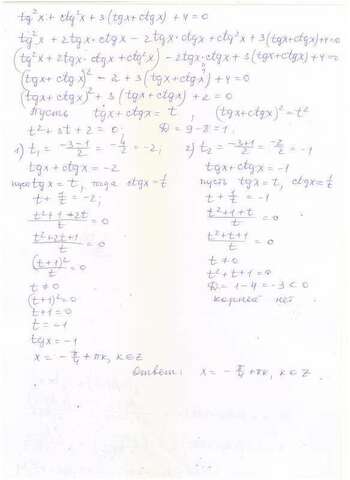 tg²x + ctg²x + 3(tgx + ctgx) + 4 = 0
tg²x + 2tgx · ctgx − 2tgx · ctgx + ctg²x + 3(tgx + ctgx) + 4 = 0
(tg²x + 2tgx · ctgx + ctg²x) − 2tgx · ctgx + 3(tgx + ctgx) + 4 = 0
(tgx + ctgx)² − 2 + 3(tgx + ctgx) + 4 = 0
(tgx + ctgx)² + 3(tgx + ctgx) + 2 = 0
Пусть tgx + ctgx = t, (tgx + ctgx)² = t²
t² + 3t + 2 = 0 D = 9 − 8 = 1.
1) t₁ = (−3−1)/2 = −4/2 = −2;
tgx + ctgx = −2
пусть tgx = t, тогда ctgx = 1/t
t + 1/t = −2;
(t² + 1 + 2t)/t = 0
(t² + 2t + 1)/t = 0
(t+1)²/t = 0
t ≠ 0
(t+1)² = 0
t + 1 = 0
t = −1
tgx = −1
x = −π/4 + πк, к∈Z
2) t₂ = (−3+1)/2 = −2/2 = −1
tgx + ctgx = −1
пусть tgx = t, ctgx = 1/t
t + 1/t = −1
(t² + 1 + t)/t = 0
(t² + t + 1)/t = 0
t ≠ 0
t² + t + 1 = 0
D = 1 − 4 = −3 < 0
корней нет
Ответ: x = −π/4 + πк, к∈Z.